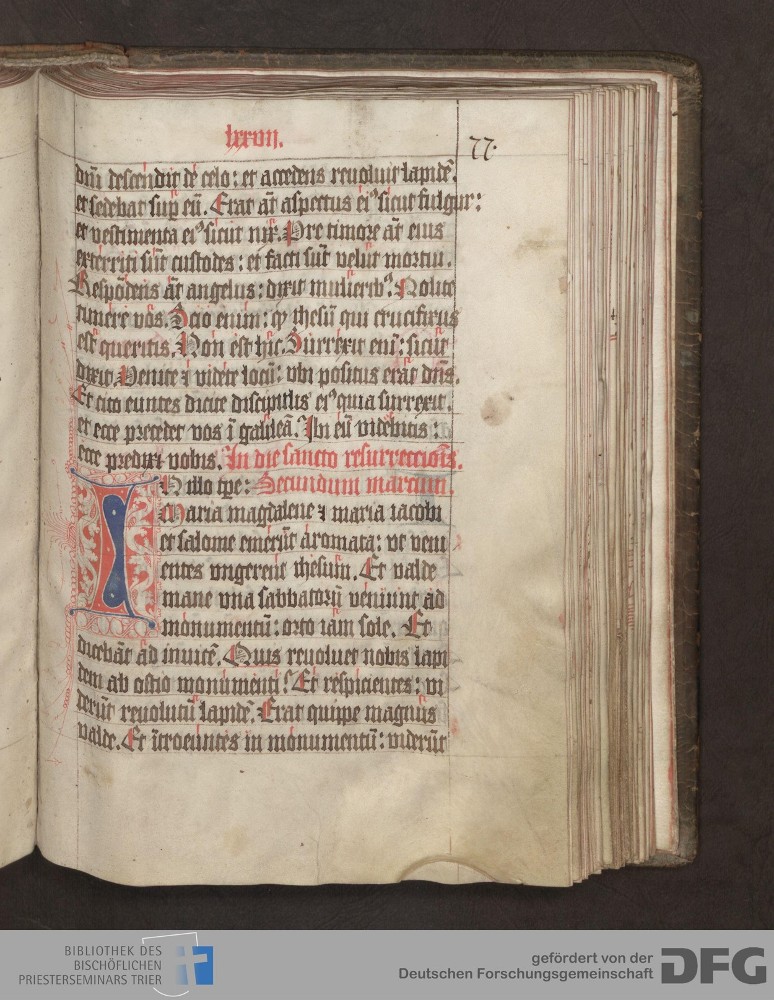 lxxvii.
77.
dn̄i descendit de celo: et accedens reuoluit lapidē.
et sedebat sup eū. Erat at̄ aspectus eiꝰ sicut fulgur:
et vestimenta eiꝰ sicut nix. Pre timore at̄ eius
exterriti sūt custodes: et facti sūt velut mortui.
Respōdens at̄ angelus: dixit mulieribꝰ. Nolite
timere vos. Scio enim: ꝙ ihesū qui crucifixus
est queritis. Non est hic. Surrexit eni̅: sicut
dixit. Venite ⁊ videte locū: vbi positus erat dn̄s.
Et cito euntes dicite discipulis eiꝰ quia surrexit.
et ecce precedet vos ī galileā. Ibi eū videbitis:
ecce predixi vobis. In die sancto resurrecciois̄.
IN illo tp̄e: Secundum marcum.
Maria magdalene ⁊ maria iacobi
et salome emerūt aromata: vt veni
entes vngerent ihesum. Et valde
mane vna sabbatorū veniunt ad
monumentū: orto iam sole. Et
dicebāt ad inuicē. Quis reuoluet nobis lapi
dem ab ostio monumenti? Et respicientes: vi
derūt reuolutū lapidē. Erat quippe magnus
valde. Et ītroeuntes in monumentū: viderūt
BIBLIOTHEK DES
BISCHÖFLICHEN
PRIESTERSEMINARS TRIER
gefördert von der
Deutschen Forschungsgemeinschaft
DFG